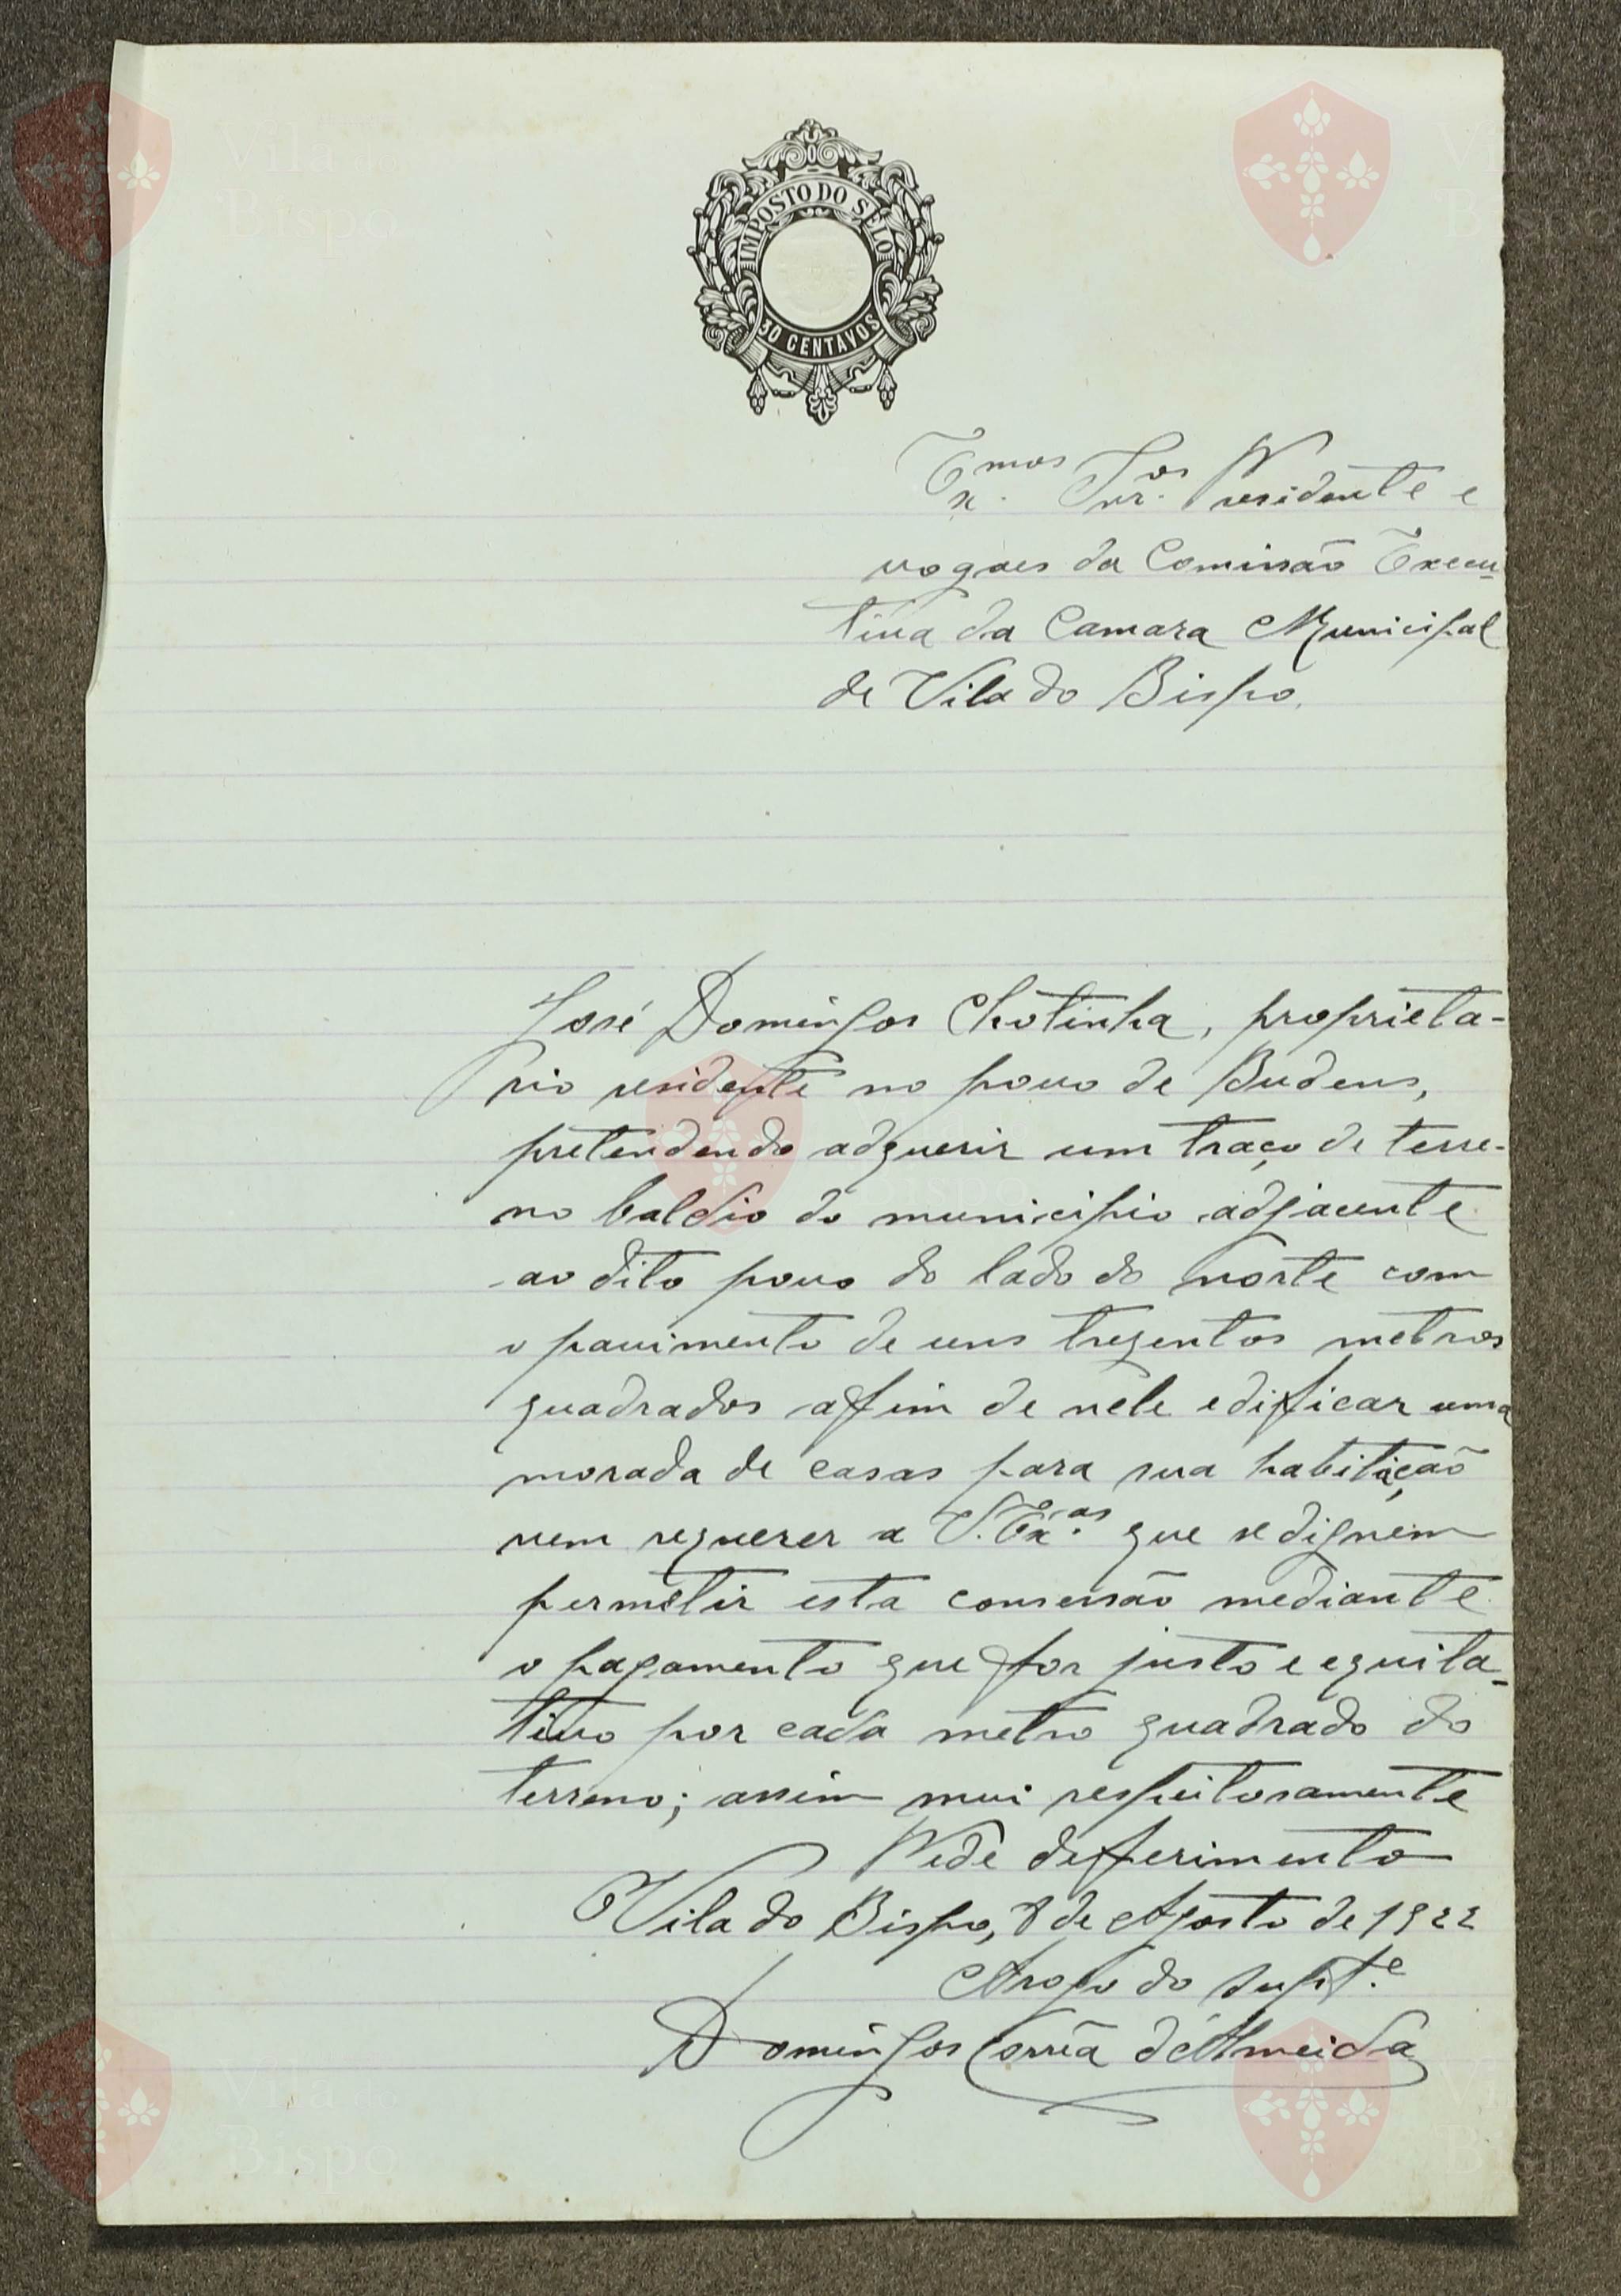 IMPOSTO DO SELO
30 CENTAVOS
Ex.mos Snr.os Presidente e
vogaes da Comissão Execu-
tiva da Camara Municipal
de Vila do Bispo.
José Domingos Chotinha, proprieta-
rio residente no povo de Budens,
pretendendo adquerir um traço de terre-
no baldio do municipio adjacente
ao dito povo do lado do norte com
o pavimento de uns trezentos metros
quadrados affim de nele edificar uma
morada de casas para sua habitação
vem requerer a V. Ex.as que se dignem
permitir esta consessão mediante
o pagamento que for justo e equita-
tivo por cada metro quadrado do
terreno; assim mui respeitosamente
Pede defferimento
Vila do Bispo, 8 de Agosto de 1922
Arogo do Supt.e
Domingos Corrêa d'Almeida
Vila do
Bispo